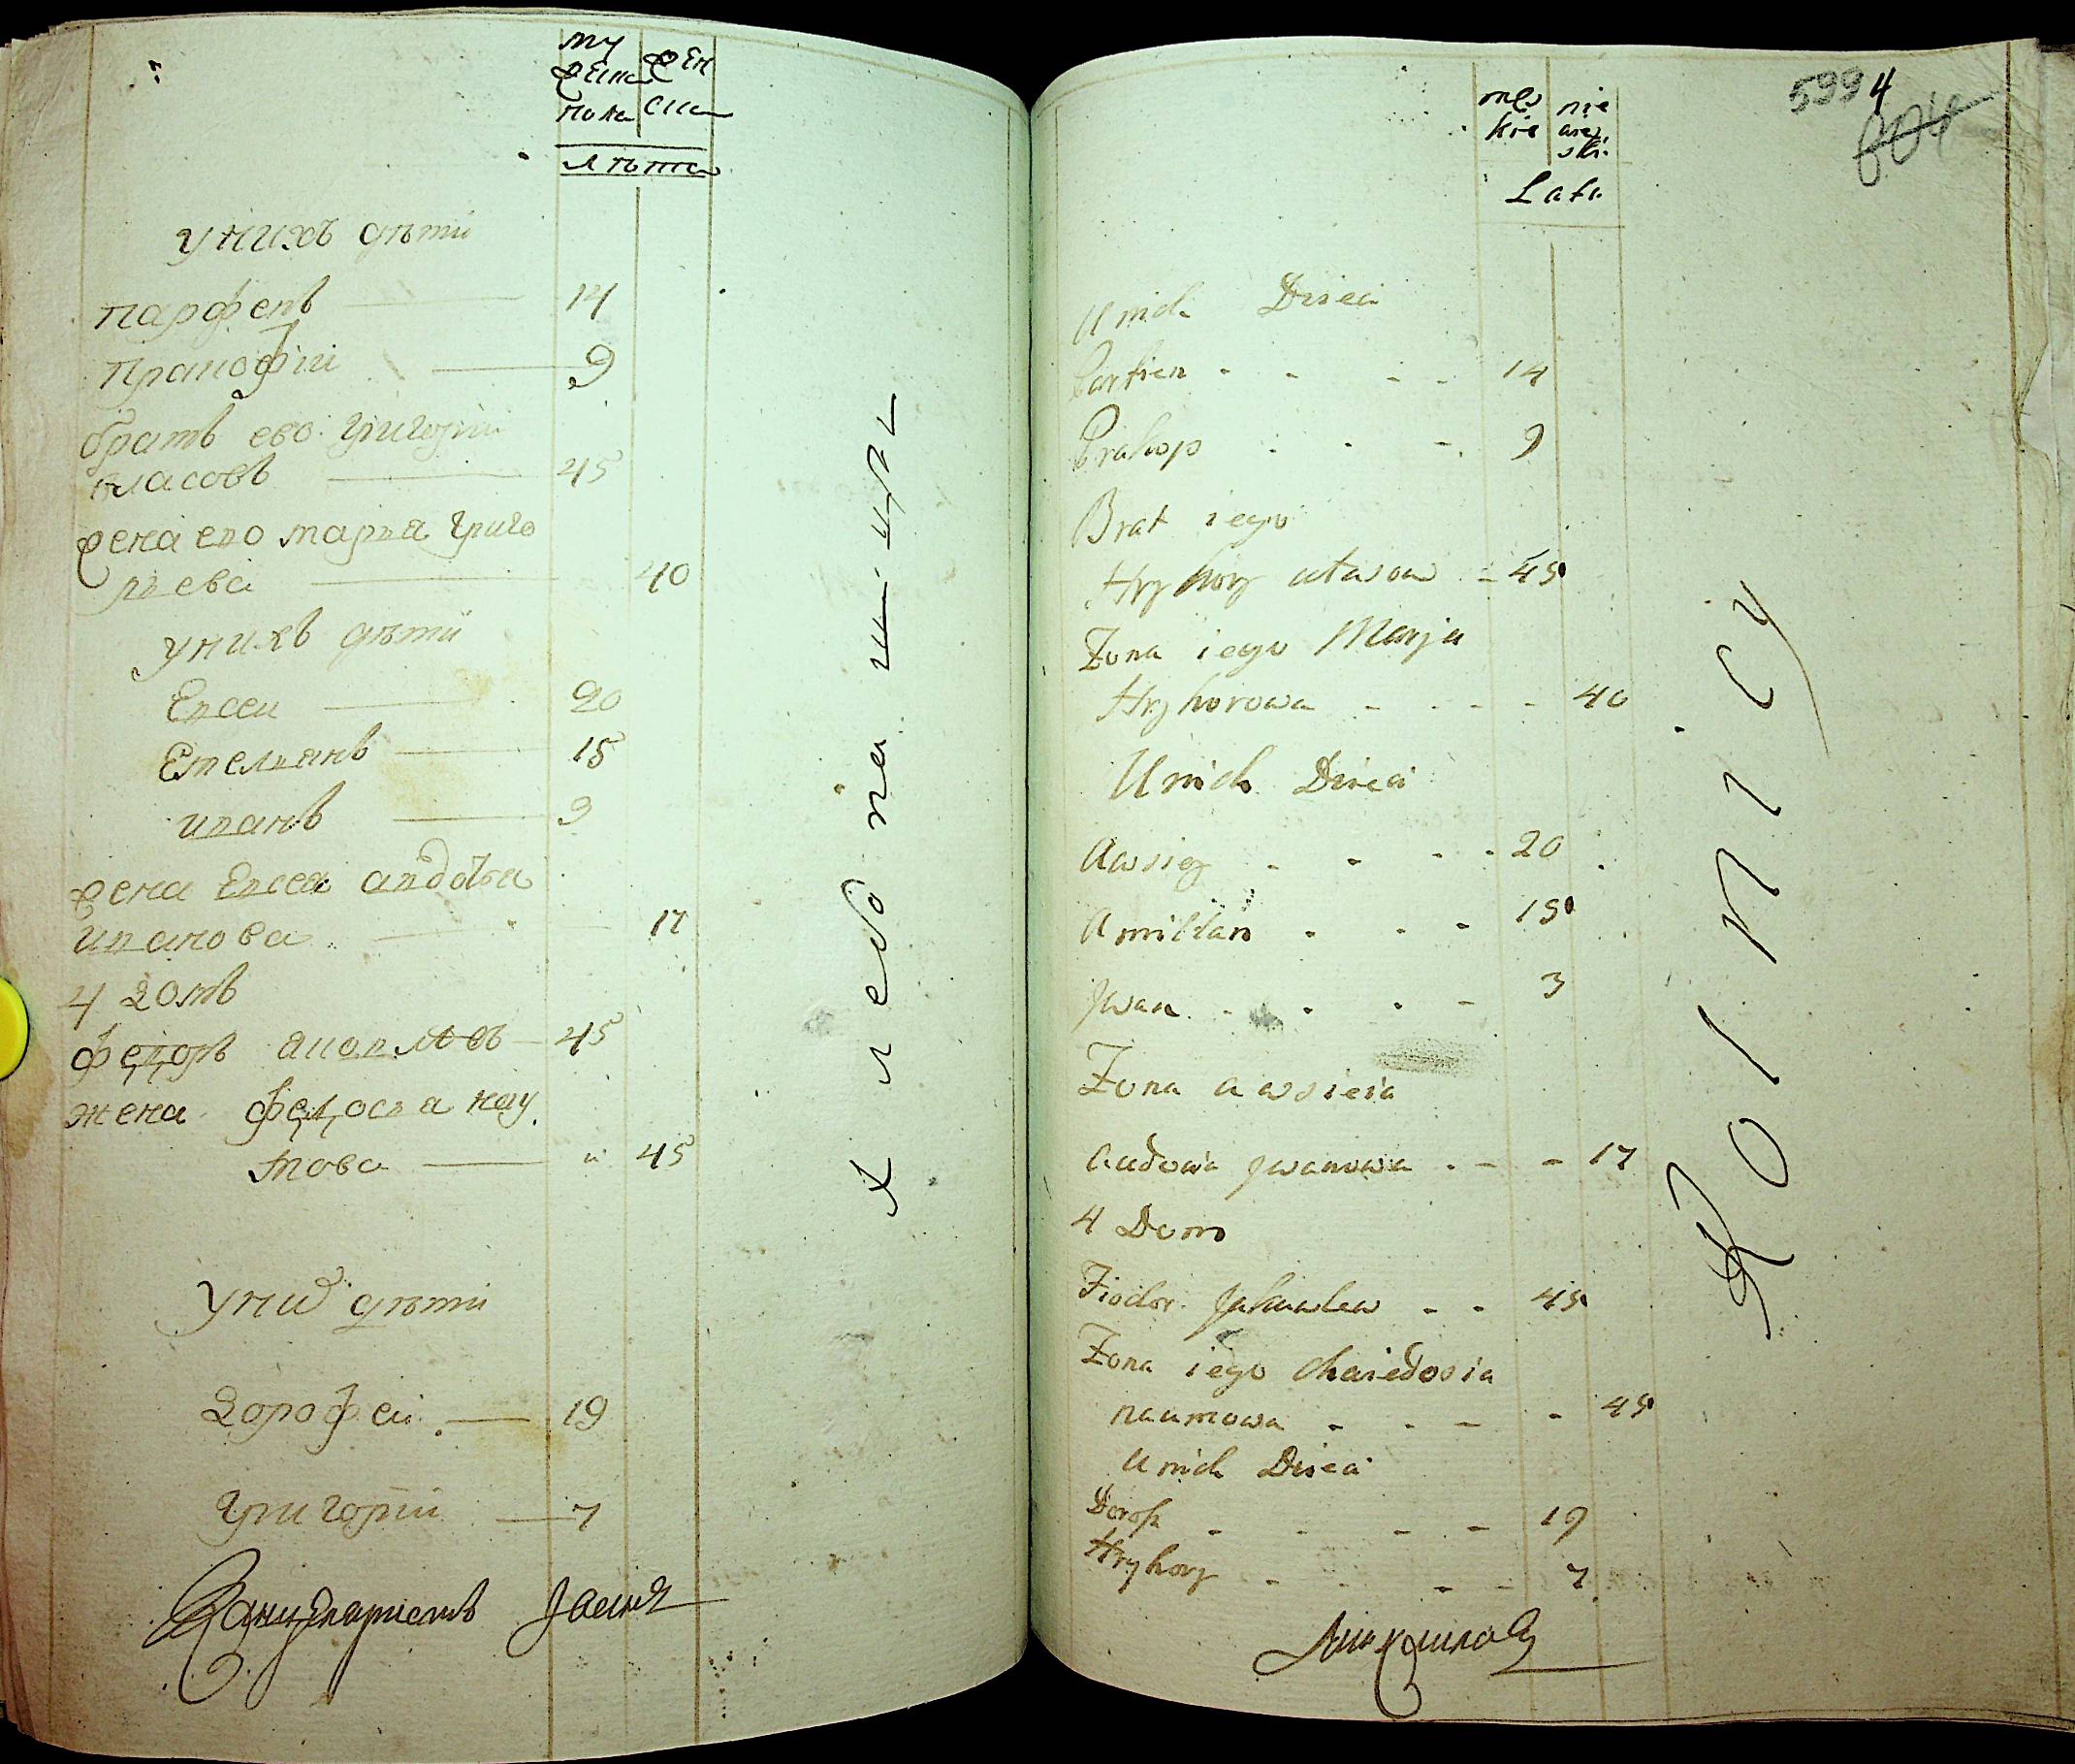 му
жеска
пола
жен
ска
лѣта
у нихъ дѣти
Парфенъ 14
Пракофіи 9
братъ ево григорiи
власовъ 45
жена ево марья григо
рьева 40
у нихъ дѣти
Евсеи 20
Емельянъ 15
иванъ 3
жена Евсея авдотья
иванова 17
4 домъ
федоръ яковлевъ 45
жена федосья нау
мова 45
у них дѣти
дорофеи 19
григорiи 7
хлебопа
męs
kie
nie
wie
ski
Lata
599
4
604
U nich Dzieci
Parfien 14
Prakop 9
Brat iego
Hryhory Ułasow 45
Zona iego Marja
Hryhorowa 40
U nich Dzieci
Awsiey 20
Amillan 15
Jwan 3
Zona Awsieia
Audocia Jwanowa 17
4 Dom
Fiodor Jakowlew 45
Zona iego Chwiedosia
naumowa 45
U nich Dzieci
Dorof 19
Hryhory 7
Rolnicy